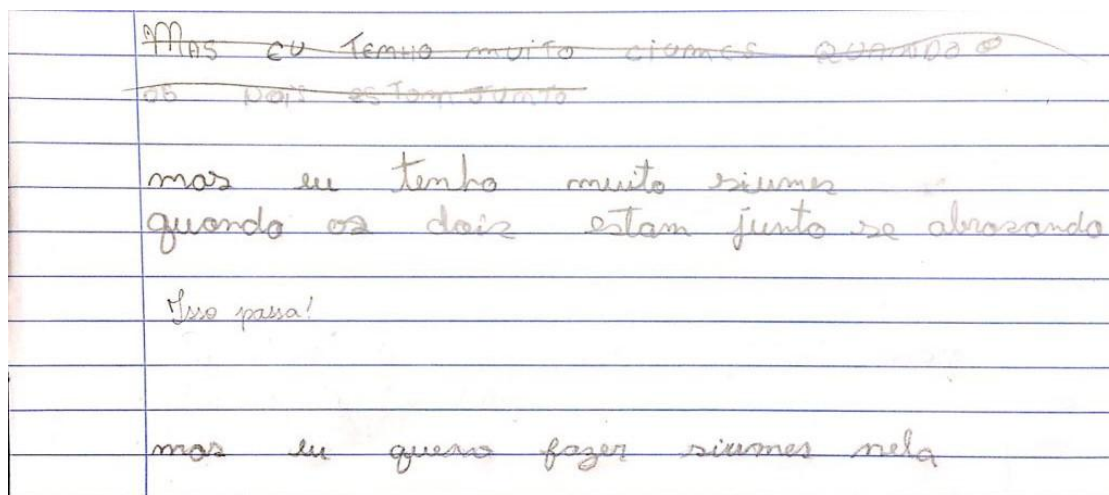 MAS EU TENHO MUITO CIUMES QUANDO
OS DOIS ESTOM JUNTO
mas eu tenho muito siumes
quando os dois estam junto se abrasando
Isso passa!
mas eu quero fazer siumes nela